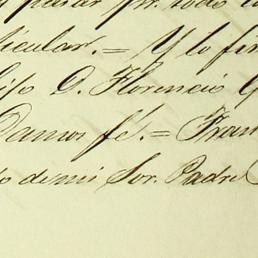 pasar por todo lo
ticular. = Y lo fir
hijo D. Florencio G
Damos fé. = Fran
o de mi Sor. Padre